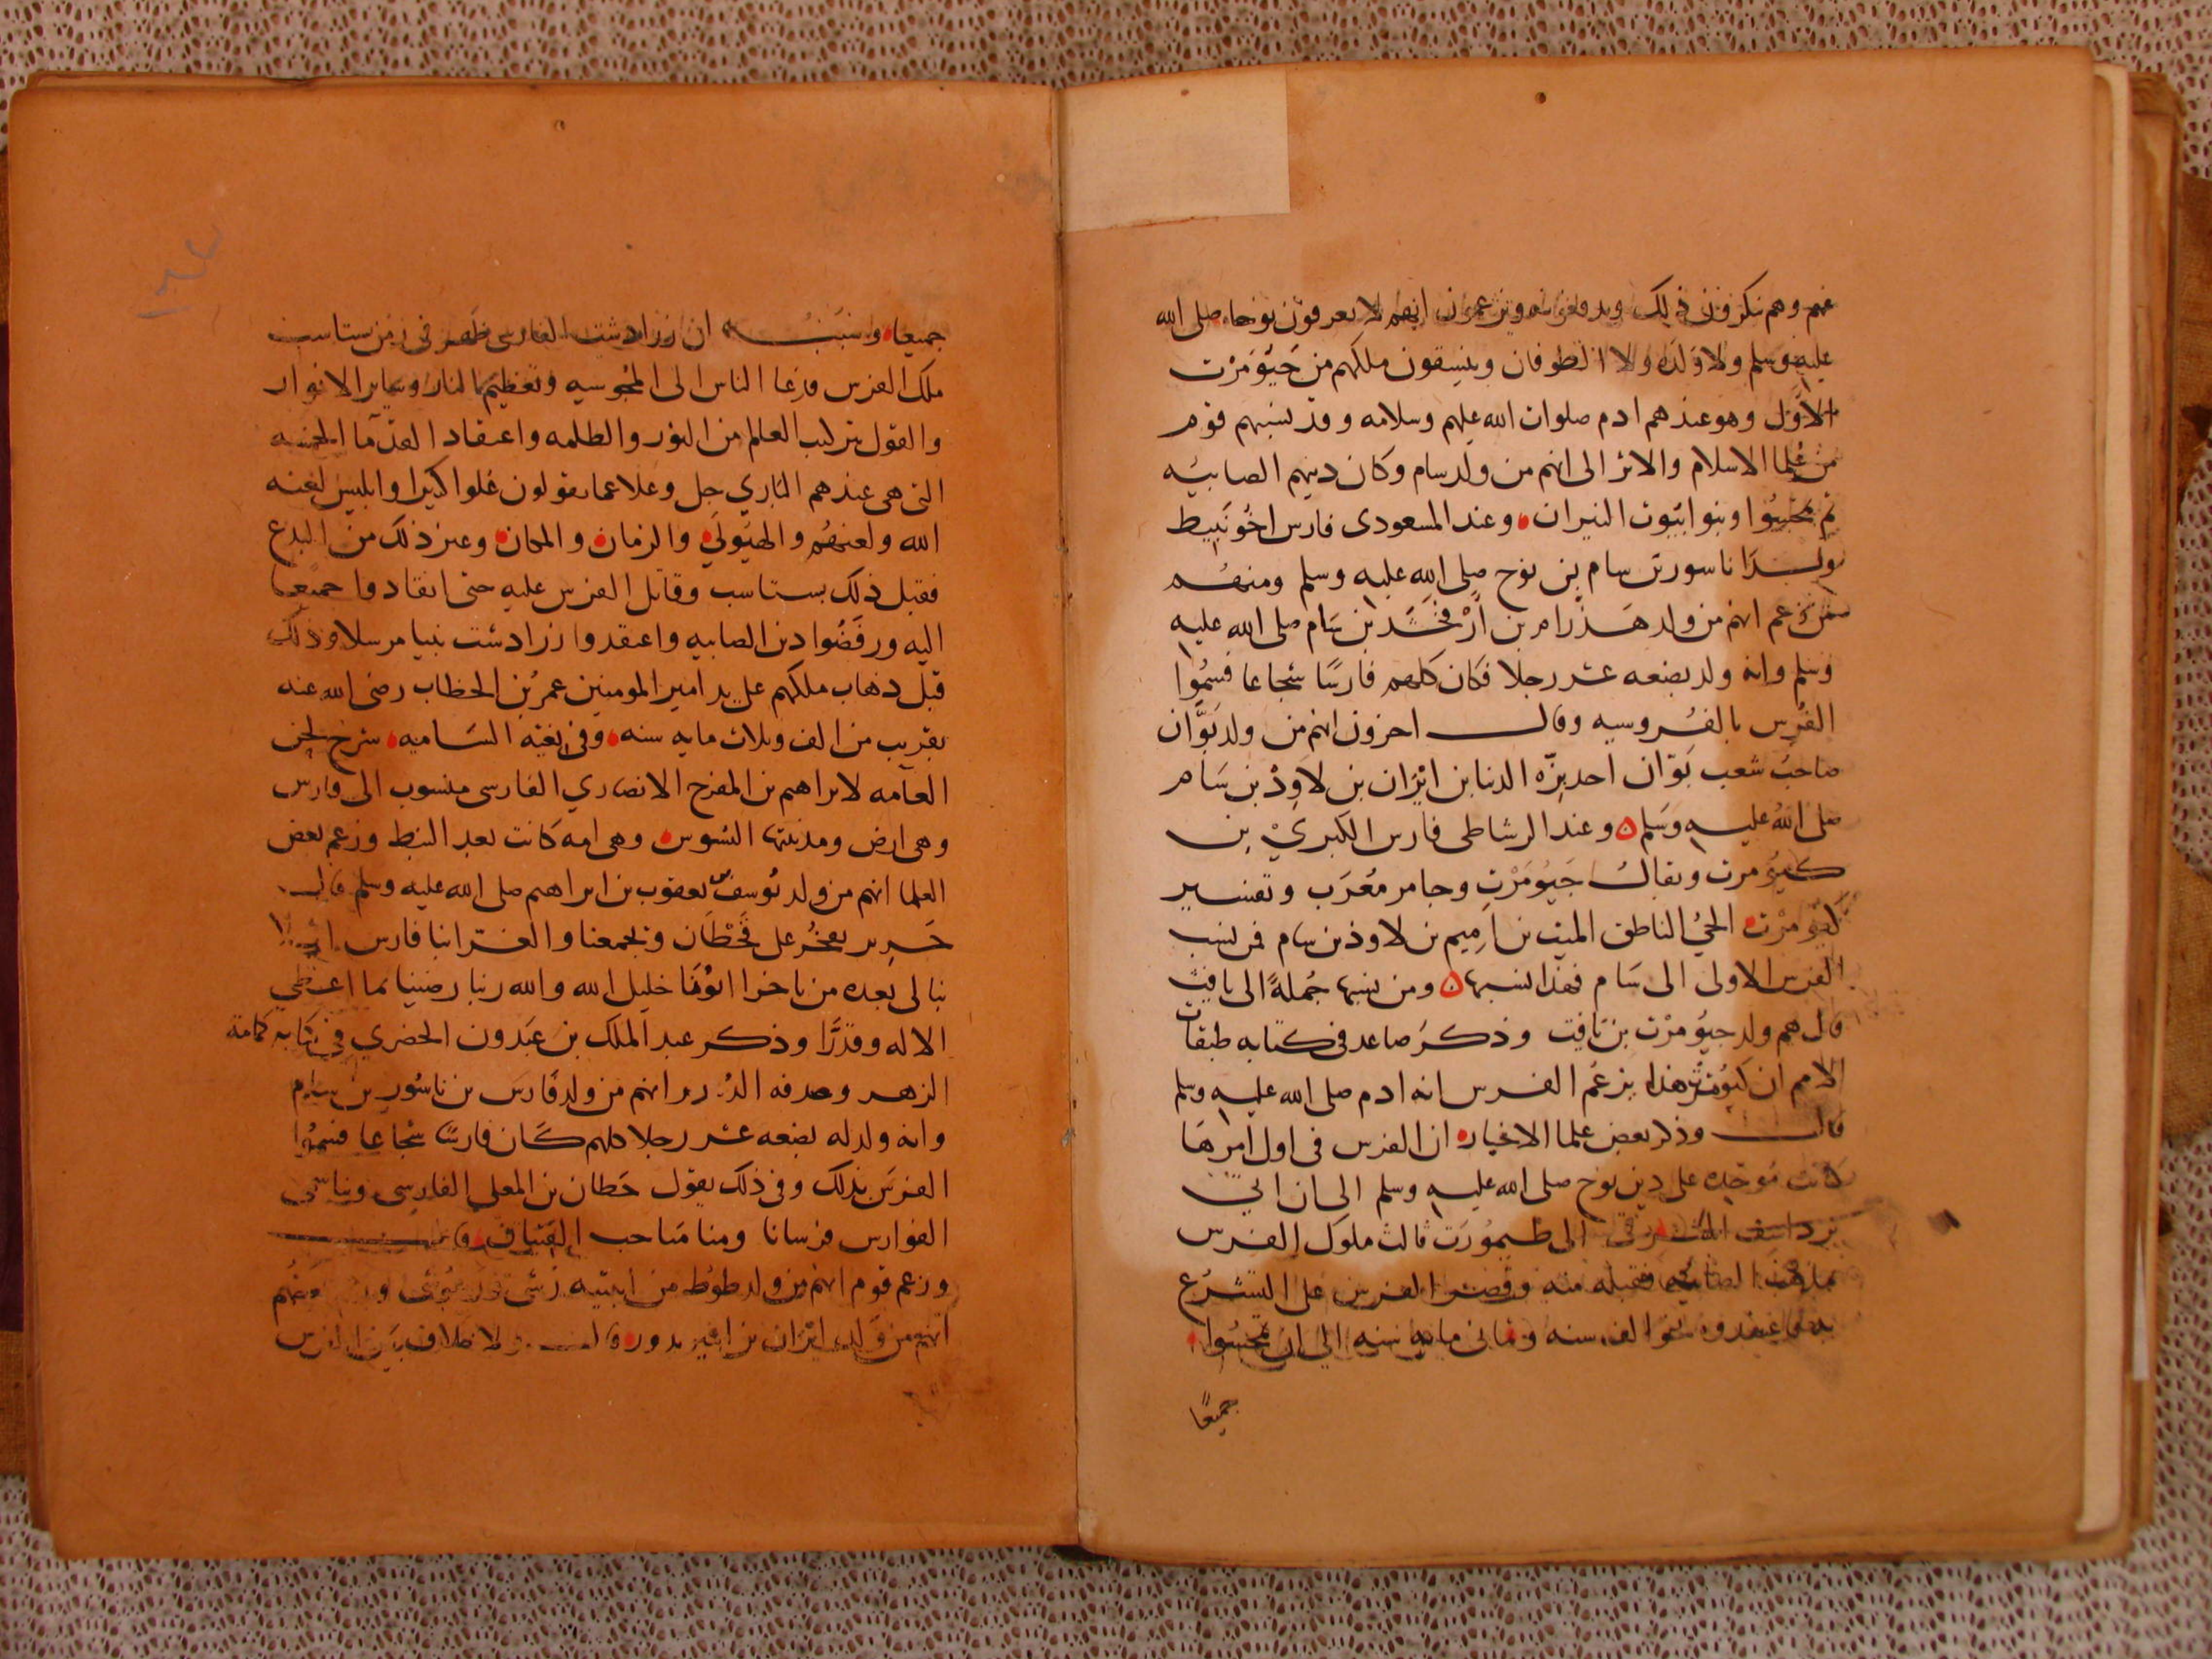 عنهم وهم ينكرون ذلك ويدفعونه ويزعمون انهم لا يعرفون نوحا صلى الله
عليه وسلم ولا ولده ولا الطوفان وينسقون ملكهم من جَيُّومَرْت
الاوّل وهو عندهم ادم صلوات الله عليهم وسلامه وقد نسبهم قوم
من علما الاسلام والاثر الى انهم من ولد سام وكان دينهم الصابيه
ثم تمجسُوا وبنوا بيُوت النيران وعند المسعودى فارس اخُو نَبيط
ولدا ناسور بن سام بن نوح صلى الله عليه وسلم ومنهُم
من زعم انهم من ولد هَذرام بن أرْفَخْشَد بن سَام صلى الله عليه
وسلم وانه ولد بضعه عشر رجلا فكان كلهم فارسًا شجاعا فسمُوا
الفُرس بالفُروسيه وقال اخرون انهم من ولد بَوَّان
صاحب شعب بَوّان احد بزّه الدنيا بن ايْرَان بن لاوِذْ بن سَام
صلى اللهُ عليه وسَلم وعند الرشاطى فارس الكبريْ بن
كيُومرت ويقالُ جَيُومَرْت وجامر معُرَب وتفسير
كيُومرْت الحيُ الناطق الميت بن اَمِيم بن لاوذ بن سام فمن نسب
الفرس الاولى الى سَام فهذا نسبها ومن نسبها جُملةً الى يافث
قال هم ولد جيُومرْت بن يَافِت وذكرَ صاعد فى كتابه طبقات
الامم ان كيُومرْت هذا يزعُم الفرس انه ادم صلى الله عليه وسلم
قال وذكر بعض علما الاخبار ان الفرس فى اول امرهَا
كانت مُوحِده على دين نوح صلى الله عليه وسلم الى ان اتى
برداسف المشرقى الى طَيمُورَت ثالث ملوك الفرس
بمذهب الصابيه فقبله منه وقصر الفرس على التشرُع
به فاعتقدوه نحو الف سنه وثمانى مايه سنه الى ان تمجسُوا
جميعًا
جميعا وسَبَبُه ان زرادشت الفارسى ظهر فى زمن ستاسب
ملك الفرس فدعا الناس الى المجُوسيه وتعظيم النار وساير الانوار
والقول بتركيب العالم من النور والظلمه واعتقاد القدَما الخمسه
التى هى عندهم الباري جل وعلا عما يقولون عُلوا كبيرا وابليس لعنه
الله ولعنهُم والهيُولَي والزمان والمكان وغير ذلك من البدع
فقبل ذلك بستاسب وقاتل الفرس عليه حتى انقادوا جميعا
اليه ورفَضُوا دين الصابيه واعتقدوا زرادشت نبيا مرسلا وذلك
قبل ذهاب ملكهم على يد امير المومنين عمرُ بن الخطاب رضى الله عنه
بقريب من الف وثلاث مايه سنه وفى بغيَه السَاميه شرح لحن
العامه لابراهيم بن المفرج الانصاري الفارسى منسوب الى فارس
وهى ارض ومدينتها السُوس وهى امه كانت بعد النبط وزعم بعض
العلما انهم من ولد يُوسف بن يعقوب بن ابراهيم صلى الله عليه وسلم قال
جَرير يفخرُ على قَحْطان ويجمعنا والغر ابنا فارس اب لا
يبالى بعده من تاخرا ابُونَا خليل الله والله ربنا رضينا بما اعطي
الاله وقدَّرَا وذكر عبد الملك بن عَبَدون الحضري فى كتابه كمامة
الزهر وصدفه الدُرر انهم من ولد فَارس بن ناسُور بن سَام
وانه ولد له بضعه عشر رجلا كلهم كَان فارسًا شجاعا فسمُوا
الفرس بذلك وفى ذلك يقول حَطان بن المعلى الفارسى وبنا سُمى
الفوارس فرسانا ومنا مَناحب الفتيان قال
وزعم قوم انهم من ولد لوُط من ابنتيه
انهم من وَلد ايْرَان بن افريدون قال ولا خلاف بَين الفرس